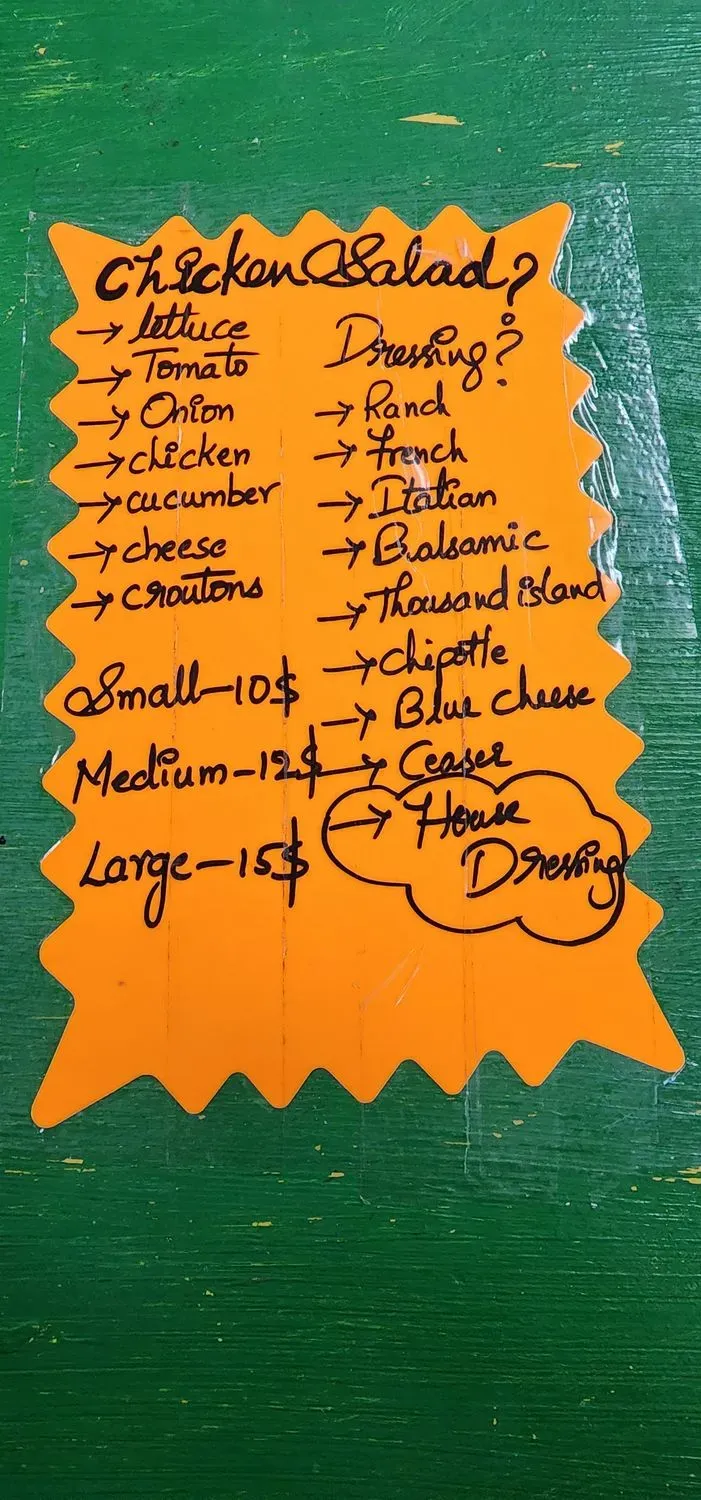 Chicken Salad?
→ lettuce
→ Tomato
→ Onion
→ chicken
→ cucumber
→ cheese
→ croutons
Small-10$
Medium-12$
Large-15$
Dressing?
→ Ranch
→ French
→ Italian
→ Balsamic
→ Thousand island
→ chipotle
→ Blue cheese
→ Ceaser
→ House
Dressing